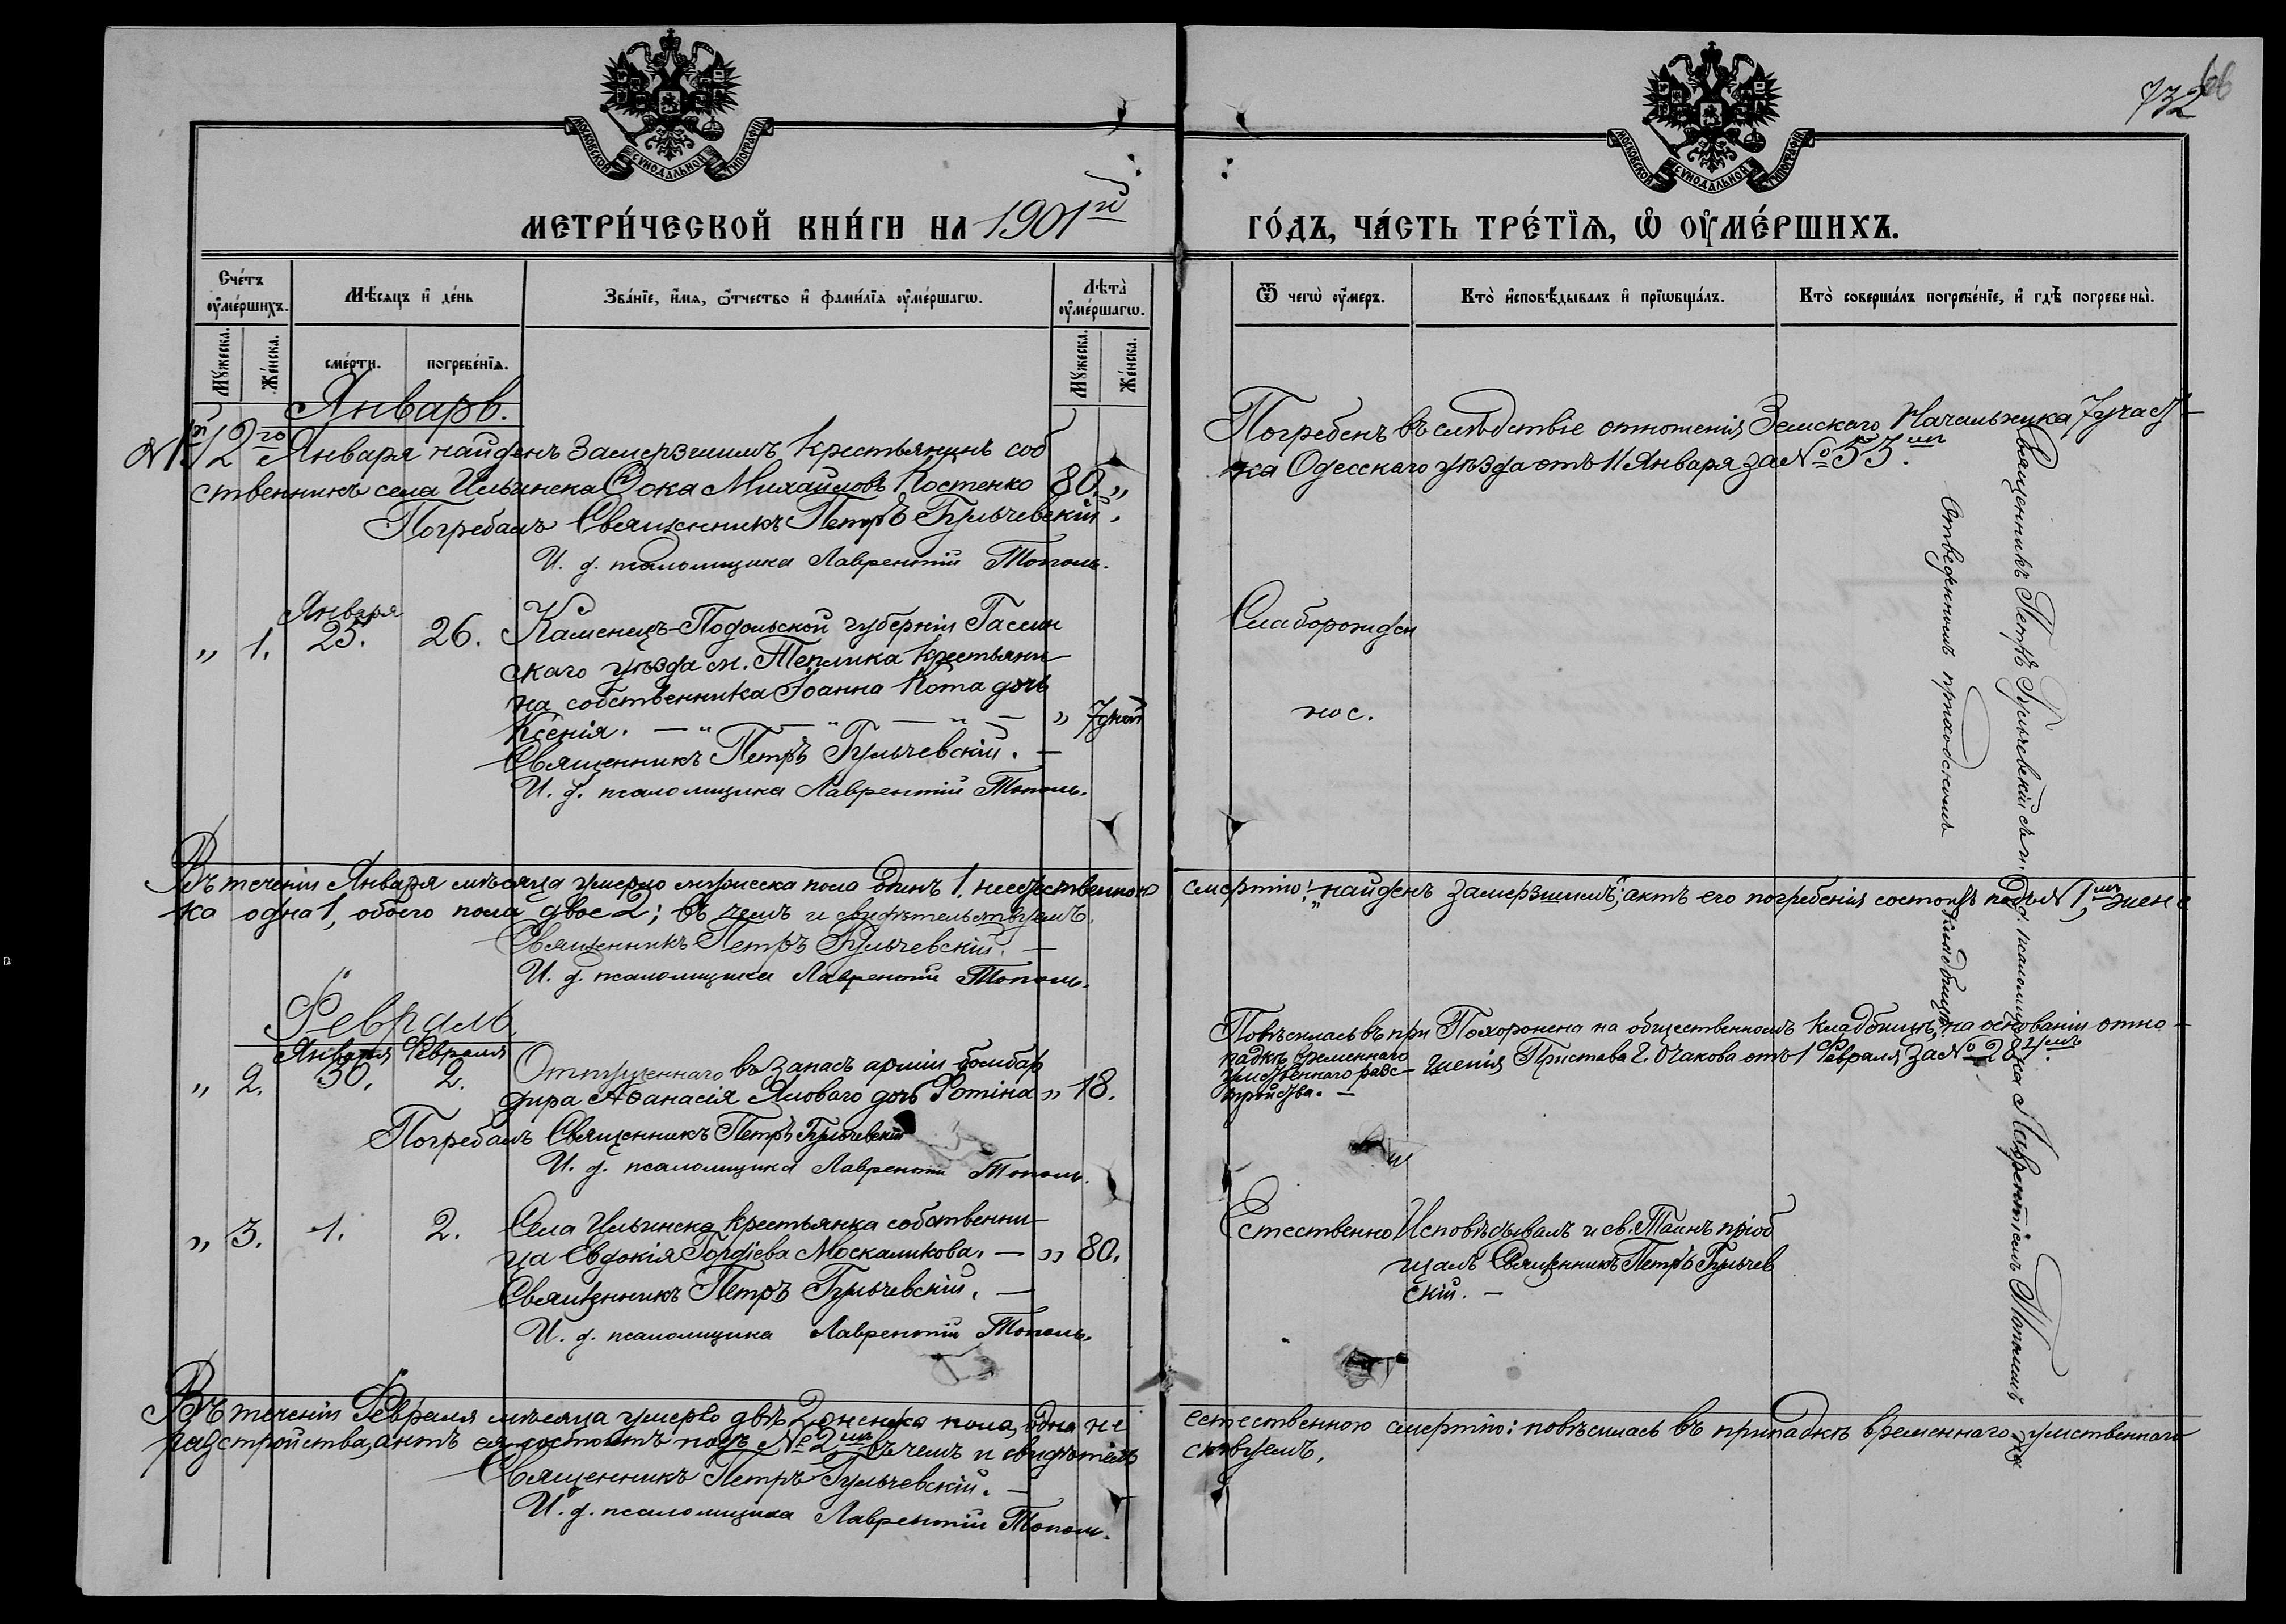 732
66
МОСКОВСКОЙ СУНОДАЛЬНОЙ ТИПОГРАФІИ
МОСКОВСКОЙ СУНОДАЛЬНОЙ ТИПОГРАФІИ
МЕТРИ́ЧЕСКОЙ КНИ́ГИ НА 1901й
ГО́ДЪ, ЧА́СТЬ ТРЕ́ТЇѦ, Ѽ ОУ҆МЕ́РШИХЪ.
Сче́тъ оу҆ме́ршихъ.
Мꙋ́жеска.
Же́нска.
Мѣ́сѧцъ и҆ де́нь
сме́рти.
погребе́нїѧ.
Зва́нїе, и҆́мѧ, ѻ҆́тчество и҆ фами́лїѧ оу҆ме́ршагѡ.
Лѣта̀ оу҆ме́ршагѡ.
Мꙋ́жеска.
Же́нска.
Ѿ чегѡ̀ оу҆́меръ.
Кто̀ и҆сповѣ́дывалъ и҆ прїѡбща́лъ.
Кто̀ соверша́лъ погребе́нїе, и҆ гдѣ̀ погребены̀.
Январь.
№1й 12го Января найденъ замерзшимъ крестьянинъ соб
ственникъ села Ильинска Ѳока Михайловъ Костенко 80. "
Погребалъ Священникъ Петръ Гульчевскій.
И. д. псаломщика Лаврентій Тополь.
Погребенъ въ слѣдствіе отношенія Земскаго Начальника 7 участ-
ка Одесскаго уѣзда отъ 11 Января за № 53.мъ
Января
" 1. 25. 26. Каменецъ-Подольской губерніи Гассин
скаго уѣзда м. Теплика крестьяни
на собственника Іоанна Кота дочь
Ксенія. — " — " — " — " 7 дней
Священникъ Петръ Гульчевскій. —
И. д. псаломщика Лаврентій Тополь.
Слаборожден
 нос.
Въ теченіи Января мѣсяца умерло мужеска пола одинъ 1. неестественною смертію: "найденъ замерзшимъ"; актъ его погребенія состоитъ подъ № 1,мъ женс
ка одна 1, обоего пола двое 2; въ чемъ и свидѣтельствуемъ.
Священникъ Петръ Гульчевскій. —
И. д. псаломщика Лаврентій Тополь.
Февраль
Января Февраля
" 2. 30. 2. Отпущеннаго въ запасъ арміи бомбар
дира Аѳанасія Яловаго дочь Фотина " 18.
Погребалъ Священникъ Петръ Гульчевскій
И. д. псаломщика Лаврентій Тополь.
Повѣсилась въ при
падкѣ временнаго
умственнаго разс-
тройства. —
Похоронена на общественномъ кладбищѣ, на основаніи отно-
шенія Пристава г. Очакова отъ 1 Февраля за № 284.мъ
" 3. 1. 2. Села Ильинска крестьянка собственни-
ца Евдокія Гордіева Москаликова. — " 80.
Священникъ Петръ Гульчевскій. —
И. д. псаломщика Лаврентій Тополь.
Естественно
Исповѣдывалъ и св. Таинъ пріоб
щалъ Священникъ Петръ Гульчев
скій. —
Священникъ Петръ Гульчевскій съ и. д. псаломщика Лаврентіемъ Тополемъ на
отведенномъ приходскомъ кладбищѣ.
Въ теченіи Февраля мѣсяца умерло двѣ 2 женска пола, одна не естественною смертію: повѣсилась въ припадкѣ временнаго умственнаго
разстройства, актъ ея состоитъ подъ № 2мъ въ чемъ и свидѣтель ствуемъ.
Священникъ Петръ Гульчевскій. —
И. д. псаломщика Лаврентій Тополь.